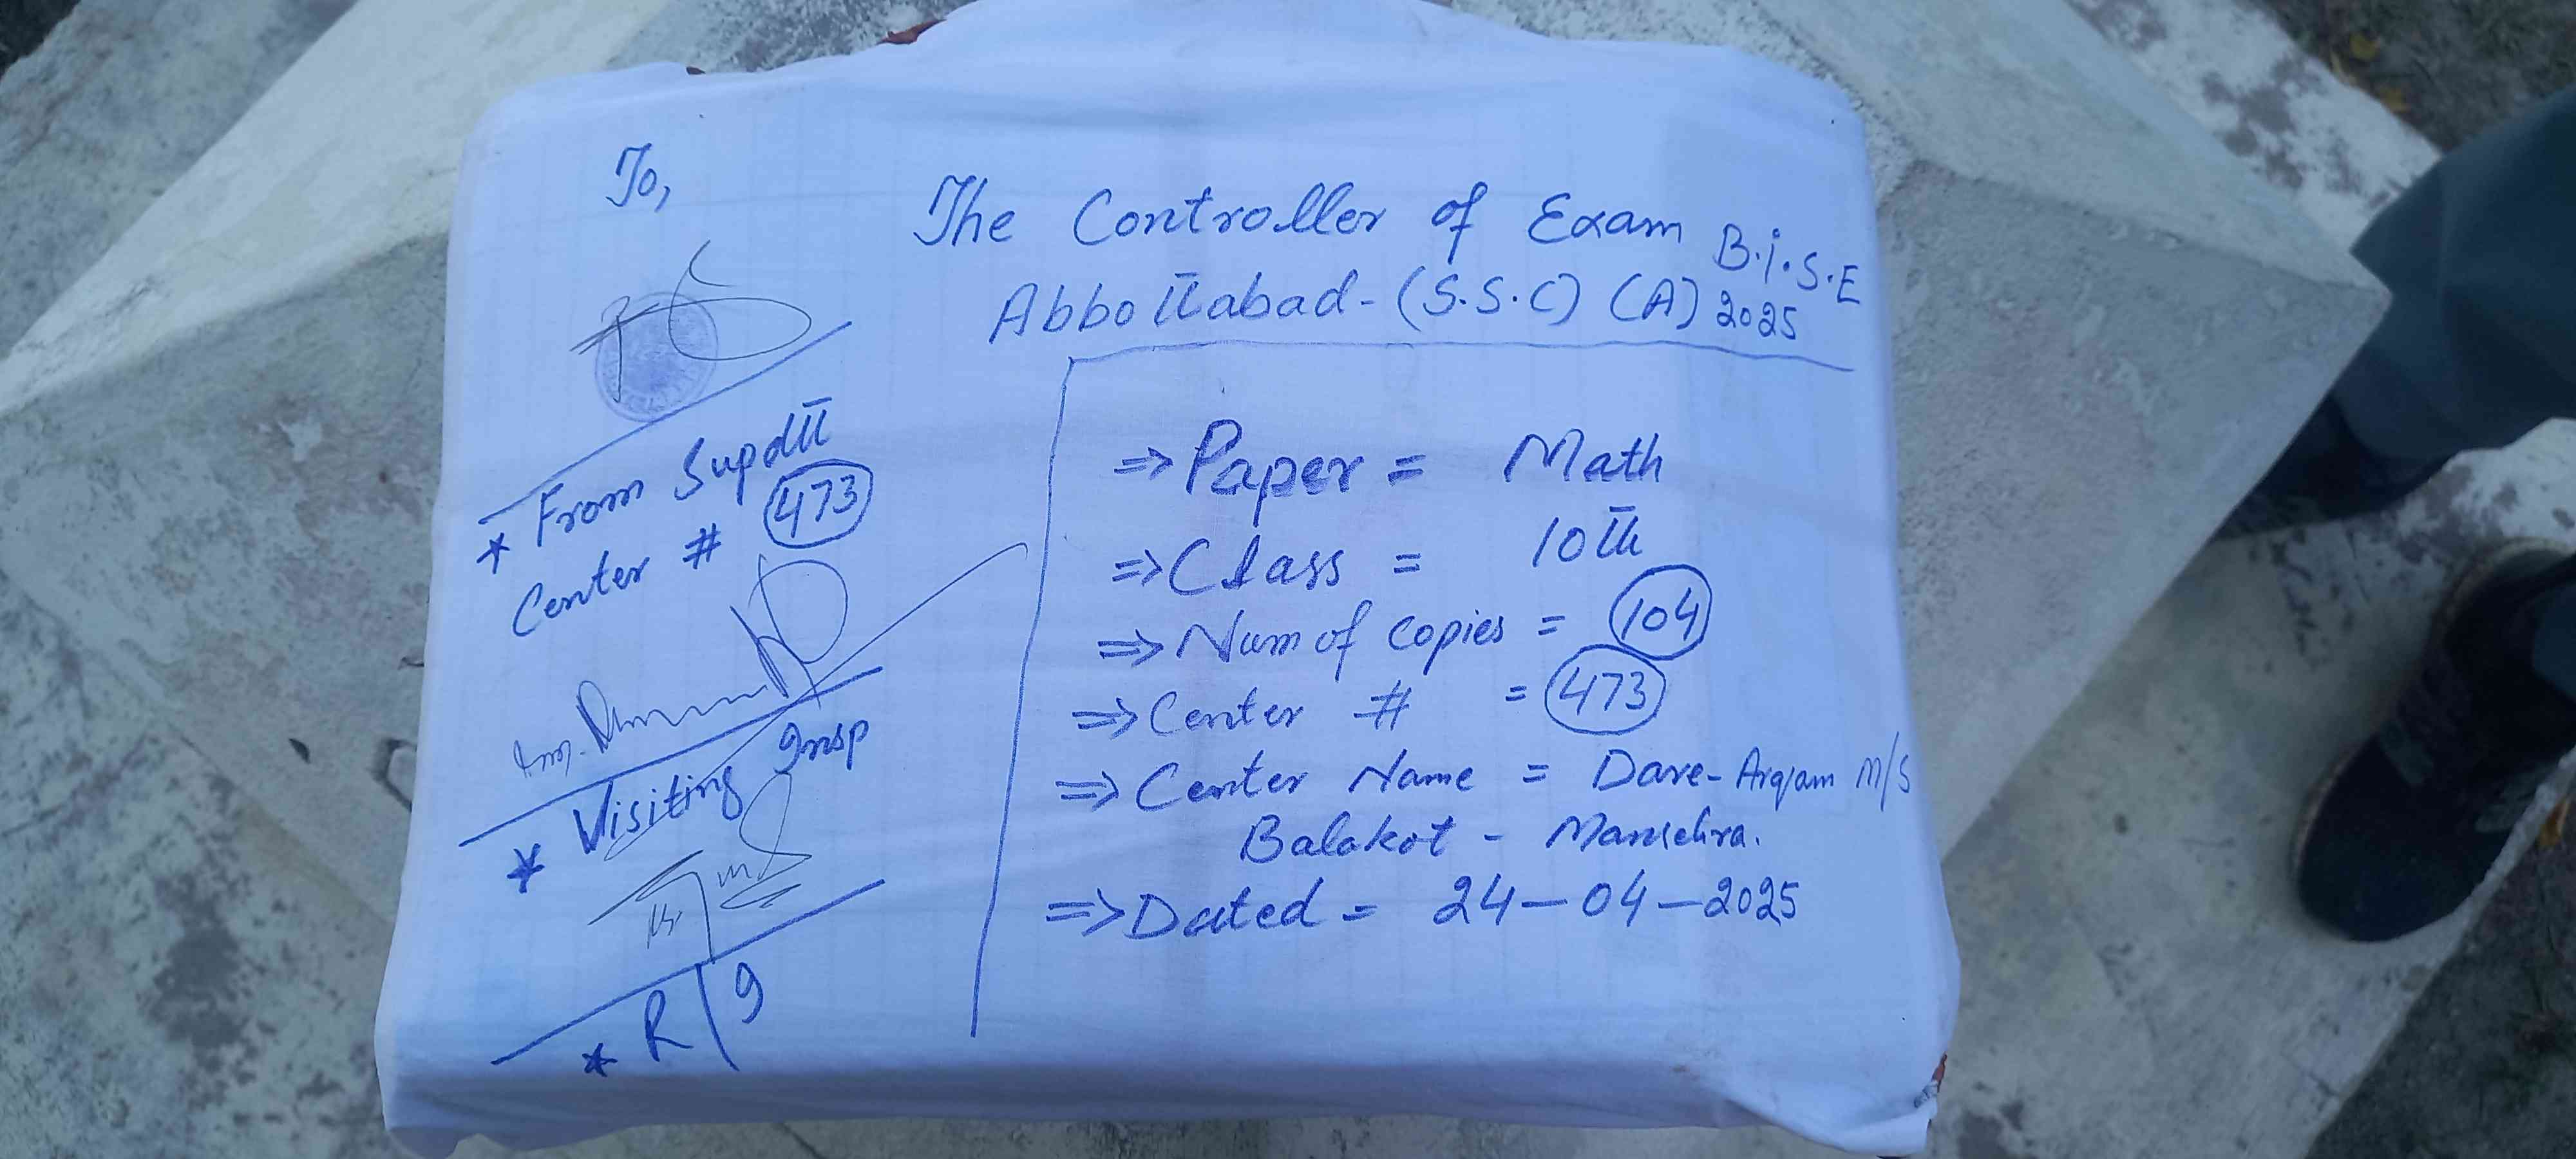 To,
The Controller of Exam B.i.S.E
Abbottabad - (S.S.C) (A) 2025
* From Supdtt
Center # 473
* Visiting Insp
* R/9
⇒ Paper = Math
⇒ Class = 10th
⇒ Num of copies = 104
⇒ Center # = 473
⇒ Center Name = Dare-Arqam M/S
Balakot - Mansehra.
⇒ Dated = 24-04-2025